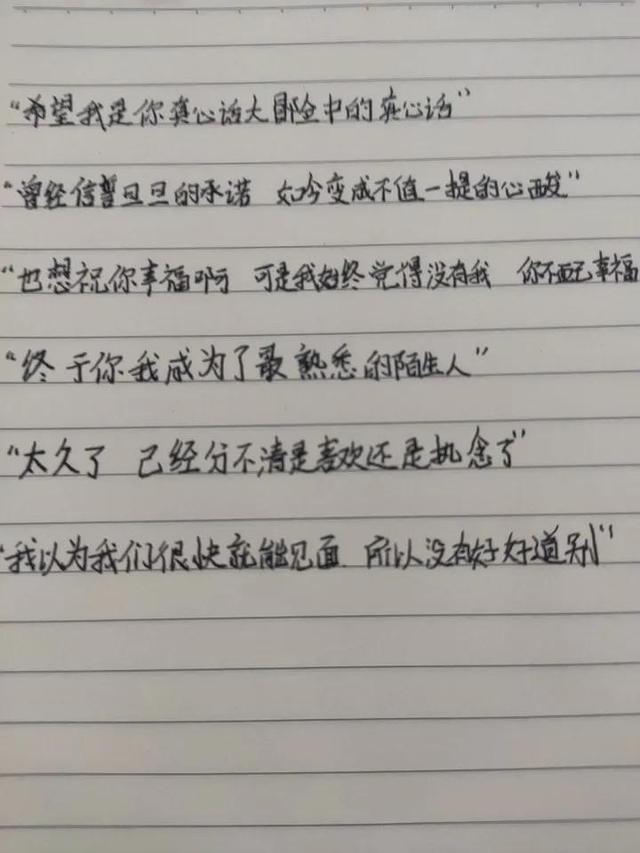 “希望我是你真心话大冒险中的真心话”
“曾经信誓旦旦的承诺 如今变成不值一提的心酸”
“也想祝你幸福啊 可是我始终觉得没有我 你不配幸福
“终于你我成为了最熟悉的陌生人”
“太久了 已经分不清是喜欢还是执念了”
“我以为我们很快就能见面 所以没有好好道别”